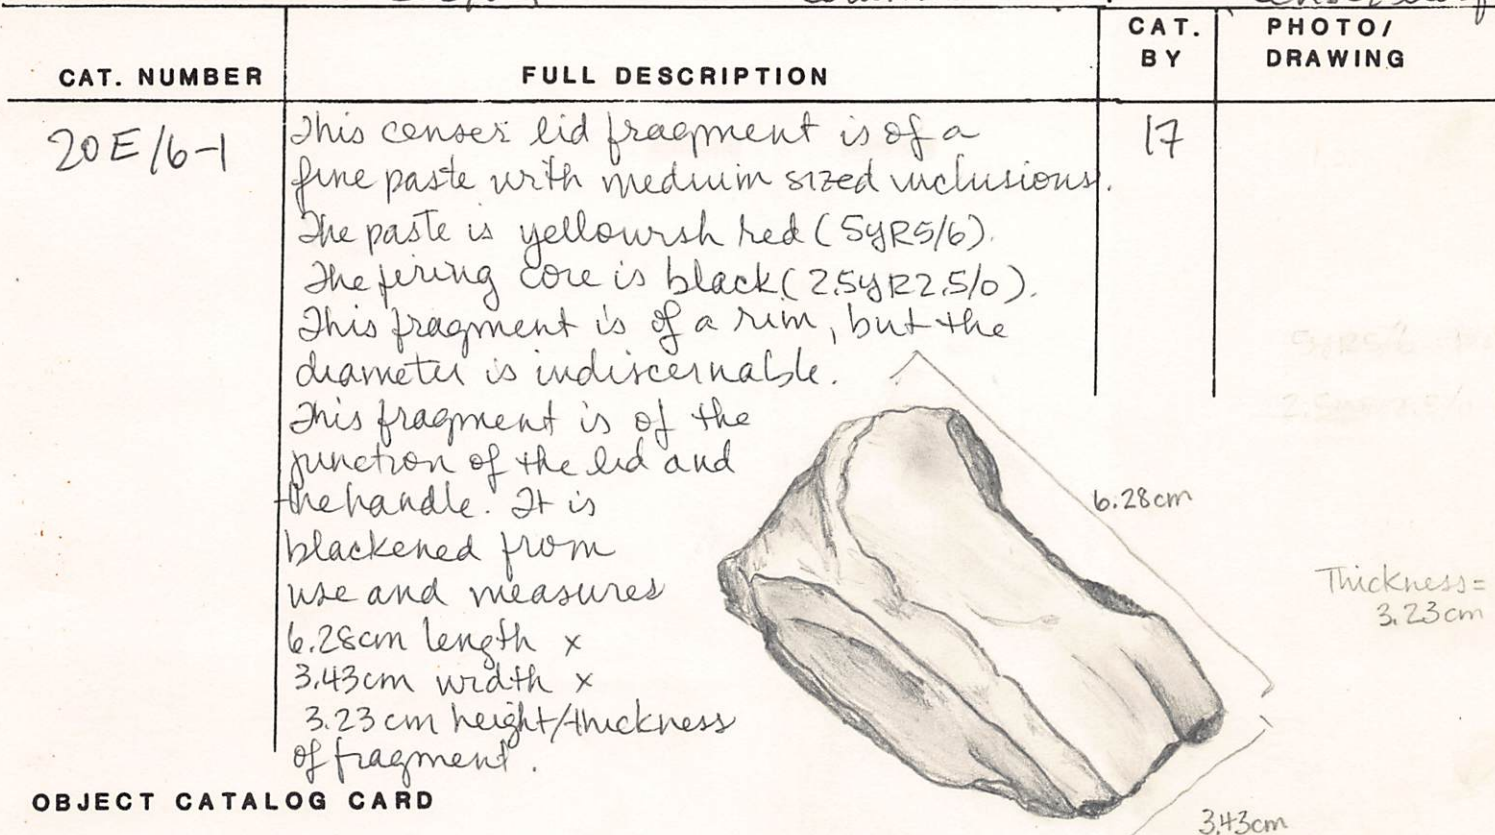 CAT. NUMBER
FULL DESCRIPTION
CAT.
BY
PHOTO/
DRAWING
20E/6-1
This censer lid fragment is of a
fine paste with medium sized inclusions.
The paste is yellowish red (5YR5/6).
The firing core is black (2.5YR2.5/0).
This fragment is of a rim, but the
diameter is indiscernable.
This fragment is of the
junction of the lid and
the handle. It is
blackened from
use and measures
6.28cm length x
3.43cm width x
3.23cm height/thickness
of fragment.
17
6.28cm
Thickness=
3.23cm
3.43cm
OBJECT CATALOG CARD